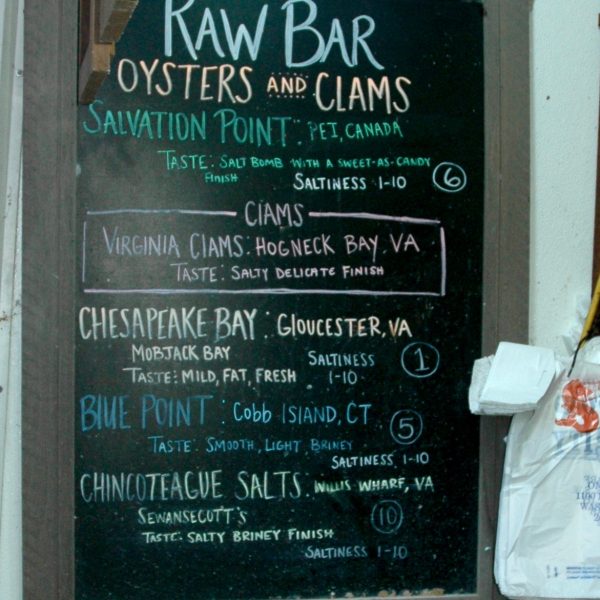 RAW BAR
OYSTERS AND CLAMS
SALVATION POINT: PEI, CANADA
TASTE: SALT BOMB WITH A SWEET-AS-CANDY
FINISH
SALTINESS 1-10 6
CLAMS
VIRGINIA CLAMS: HOGNECK BAY, VA
TASTE: SALTY DELICATE FINISH
CHESAPEAKE BAY: GLOUCESTER, VA
MOBJACK BAY
SALTINESS 1
TASTE: MILD, FAT, FRESH 1-10
BLUE POINT: COBB ISLAND, CT
5
TASTE: SMOOTH, LIGHT BRINEY
SALTINESS 1-10
CHINCOTEAGUE SALTS: WILLIS WHARF, VA
SEWANSECOTT'S 10
TASTE: SALTY BRINEY FINISH
SALTINESS 1-10